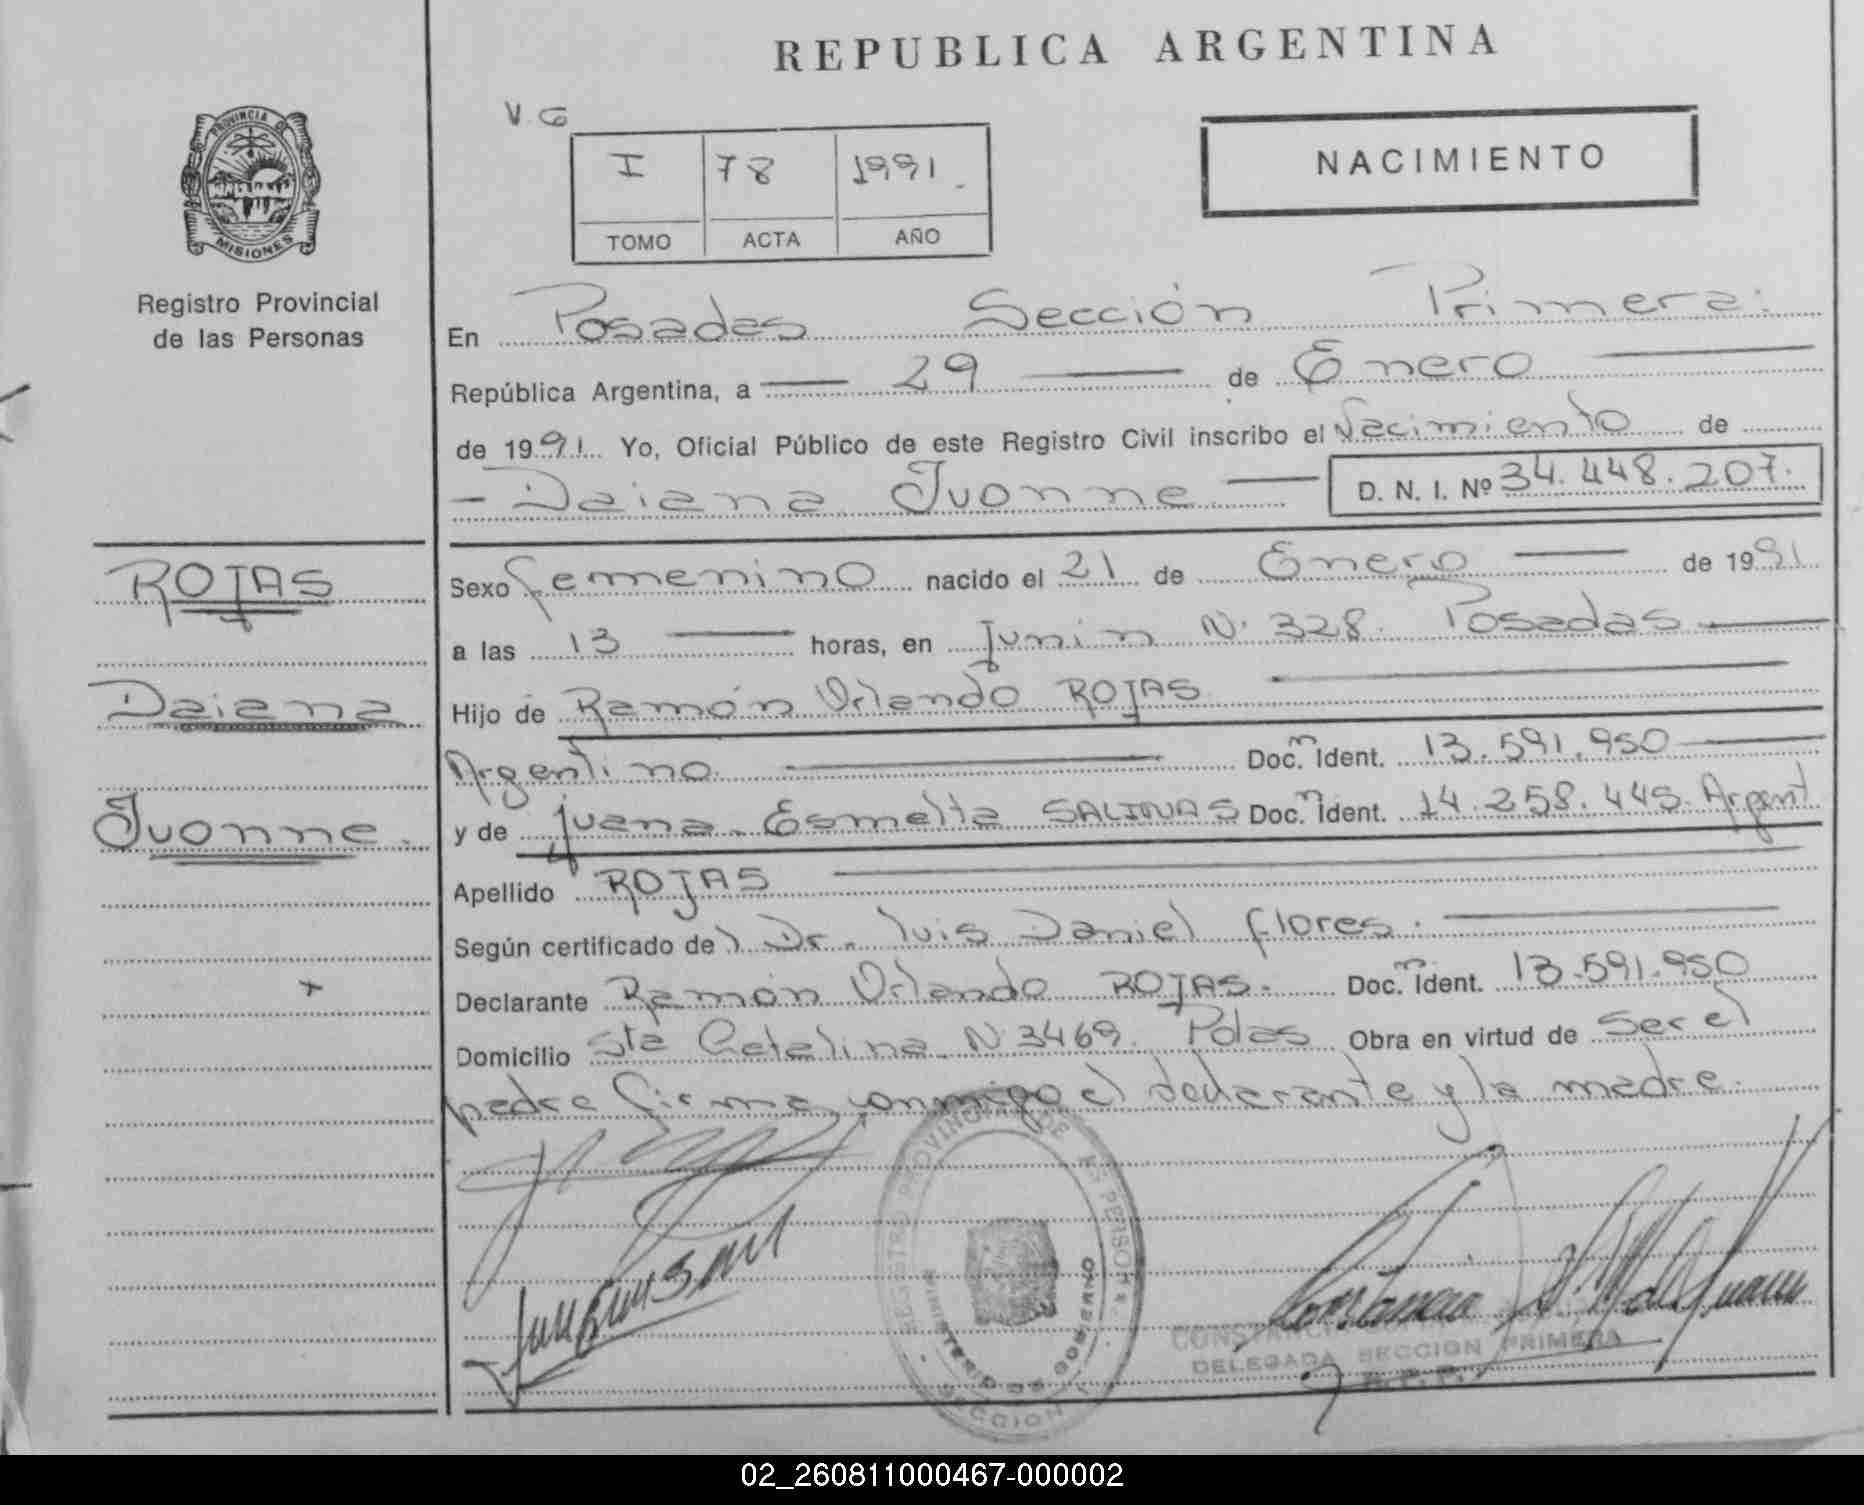 REPUBLICA ARGENTINA
V.G
I 78 1991
TOMO ACTA AÑO
NACIMIENTO
PROVINCIA DE
MISIONES
Registro Provincial
de las Personas
En Posadas Sección Primera.
República Argentina, a 29 de Enero
de 1991. Yo, Oficial Público de este Registro Civil inscribo el Nacimiento de
Daiana Ivonne D. N. I. Nº 34.448.207.
ROJAS
Daiana
Ivonne.
Sexo femenino nacido el 21 de Enero de 1991
a las 13 horas, en Junin N. 328. Posadas
Hijo de Ramón Orlando ROJAS
Argentino Doc. m Ident. 13.591.950
y de Juana Esmelta SALINAS Doc. m Ident. 14.258.445. Argent
Apellido ROJAS
Según certificado del Dr. Luis Daniel Flores.
Declarante Ramón Orlando ROJAS. Doc. m Ident. 13.591.950
Domicilio Sta Catalina N 3469. Pdas Obra en virtud de ser el
padre firma conmigo el declarante y la madre.
REGISTRO PROVINCIAL DE
MINISTERIO DE GOBIERNO
SECCION
DELEGADA SECCION PRIMERA
02_260811000467-000002